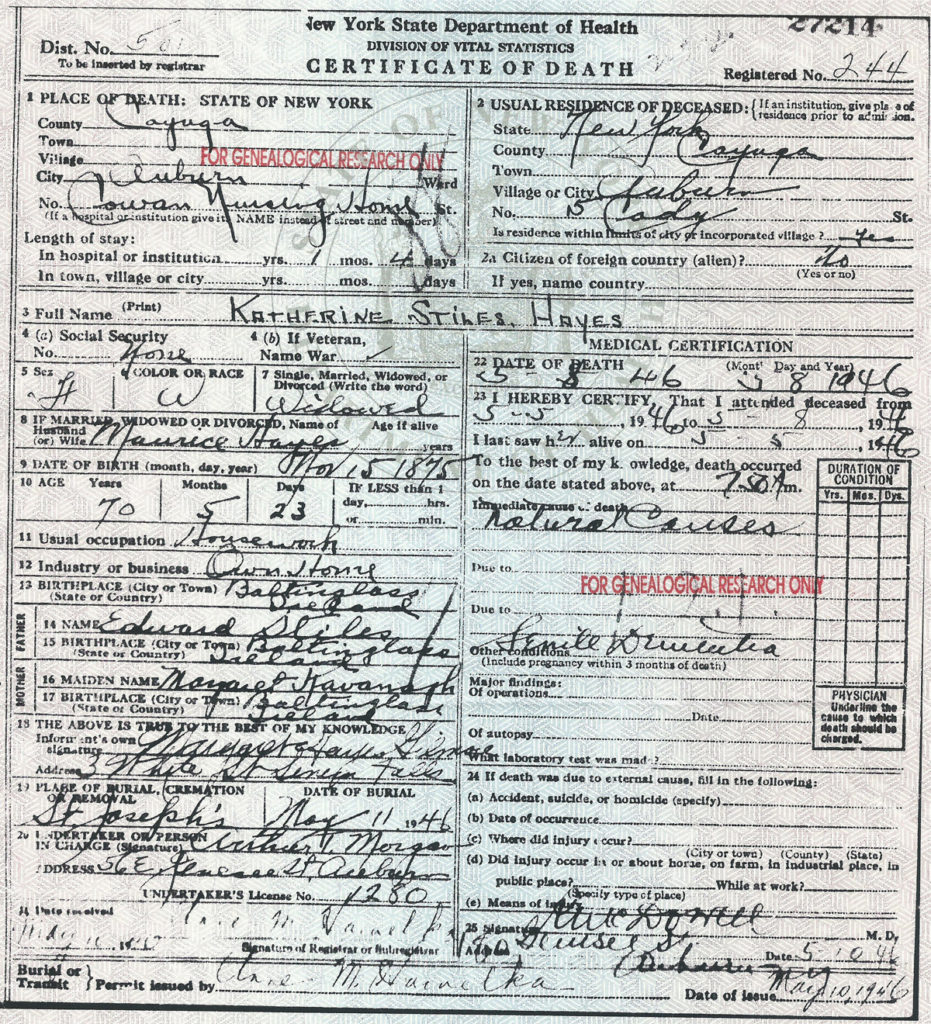 New York State Department of Health
27214
Dist. No. 501
DIVISION OF VITAL STATISTICS
To be inserted by registrar
CERTIFICATE OF DEATH
Registered No. 244
1 PLACE OF DEATH: STATE OF NEW YORK
County Cayuga
Town
Village
FOR GENEALOGICAL RESEARCH ONLY
City Auburn Ward
No. Cowan Nursing Home St.
(If a hospital or institution give its NAME instead of street and number)
Length of stay:
In hospital or institution yrs. 1 mos. 4 days
In town, village or city yrs. mos. days
2 USUAL RESIDENCE OF DECEASED: {If an institution, give place of residence prior to admission.
State New York
County Cayuga
Town
Village or City Auburn
No. 5 Cady St.
Is residence within limits of city or incorporated village? Yes
2a Citizen of foreign country (alien)? No
(Yes or no)
If yes, name country
3 Full Name (Print) KATHERINE STILES HAYES
4 (a) Social Security No. None
4 (b) If Veteran, Name War
5 Sex F
6 COLOR OR RACE W
7 Single, Married, Widowed, or Divorced (Write the word)
Widowed
8 IF MARRIED, WIDOWED OR DIVORCED, Name of Husband (or) Wife Maurice Hayes
Age if alive years
9 DATE OF BIRTH (month, day, year) Nov 15 1875
10 AGE Years Months Days IF LESS than 1
day, hrs.
or min.
70 5 23
11 Usual occupation Housework
12 Industry or business Own Home
13 BIRTHPLACE (City or Town) Baltinglass
(State or Country) Ireland
FATHER
14 NAME Edward Stiles
15 BIRTHPLACE (City or Town) Baltinglass
(State or Country) Ireland
MOTHER
16 MAIDEN NAME Margaret Kavanagh
17 BIRTHPLACE (City or Town) Baltinglass
(State or Country) Ireland
18 THE ABOVE IS TRUE TO THE BEST OF MY KNOWLEDGE
Informant's own signature Margaret Hayes Gilmore
Address 3 White St Seneca Falls
19 PLACE OF BURIAL, CREMATION OR REMOVAL DATE OF BURIAL
St Joseph's May 11 1946
20 UNDERTAKER OR PERSON IN CHARGE (Signature) Arthur T. Morgan
ADDRESS 56 E Genesee St Auburn
UNDERTAKER'S License No. 1280
21 Date received
May 10
Signature of Registrar or Subregistrar
Burial or Transit } Permit issued by
MEDICAL CERTIFICATION
22 DATE OF DEATH (Month Day and Year)
5 8 46 5 8 1946
23 I HEREBY CERTIFY, That I attended deceased from
5-5, 1946 to 5 - 8, 1946
I last saw her alive on 5 - 5 1946
To the best of my knowledge, death occurred
on the date stated above, at 7:50 A m.
Immediate cause of death
Natural Causes
Due to
FOR GENEALOGICAL RESEARCH ONLY
Due to
Other conditions Senile Dementia
(Include pregnancy within 3 months of death)
Major findings:
Of operations
Date
Of autopsy
What laboratory test was made?
DURATION OF CONDITION
Yrs. Mos. Dys.
PHYSICIAN
Underline the cause to which death should be charged.
24 If death was due to external cause, fill in the following:
(a) Accident, suicide, or homicide (specify)
(b) Date of occurrence
(c) Where did injury occur?
(City or town) (County) (State)
(d) Did injury occur in or about home, on farm, in industrial place, in
public place? While at work?
(Specify type of place)
(e) Means of injury
25 Signature M. D.
Address Genesee St Date 5-10 46
Auburn NY
Date of issue May 10, 1946